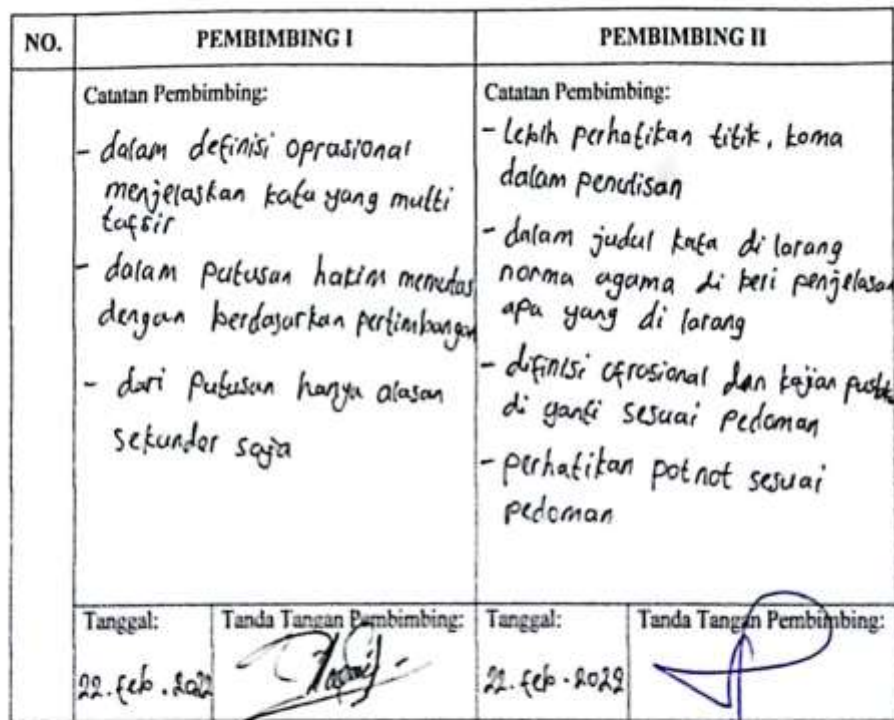 NO.
PEMBIMBING I
PEMBIMBING II
Catatan Pembimbing:
- dalam definisi oprasional
menjelaskan kata yang multi
tafsir
- dalam putusan hakim memutus
dengan berdasarkan pertimbangan
- dari putusan hanya alasan
sekunder saja
Catatan Pembimbing:
- Lebih perhatikan titik, koma
dalam penulisan
- dalam judul kata di larang
norma agama di beri penjelasan
apa yang di larang
- difinisi oprasional dan kajian pustaka
di ganti sesuai pedoman
- perhatikan potnot sesuai
pedoman
Tanggal:
22. feb. 2022
Tanda Tangan Pembimbing:
Tanggal:
22. feb. 2022
Tanda Tangan Pembimbing: